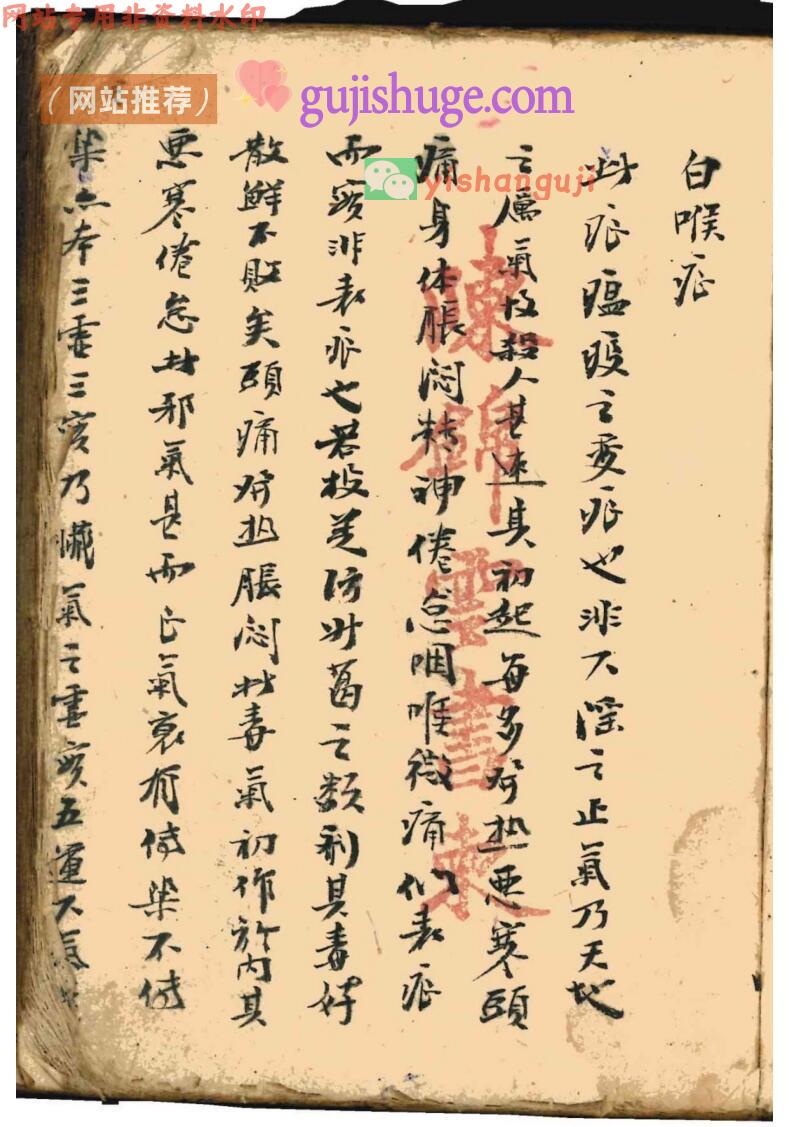 网站专用非资料水印
(网站推荐)
gujishuge.com
yishanguji
白喉症
此症瘟疫之变症也非六淫之正氣乃天地
之厲氣故殺人甚速其初起每多发热悪寒頭
痛身体脹闷精神倦怠咽喉微痛似表症
而实非表症也若投羌防升葛之類利其毒
散鮮不敗矣頭痛发热脹闷此毒氣初作於内其
悪寒倦怠此邪氣甚而正氣衰有傳染不傳
染六本三虚三实乃懺氣之虚实五運六氣
陳錦雲書